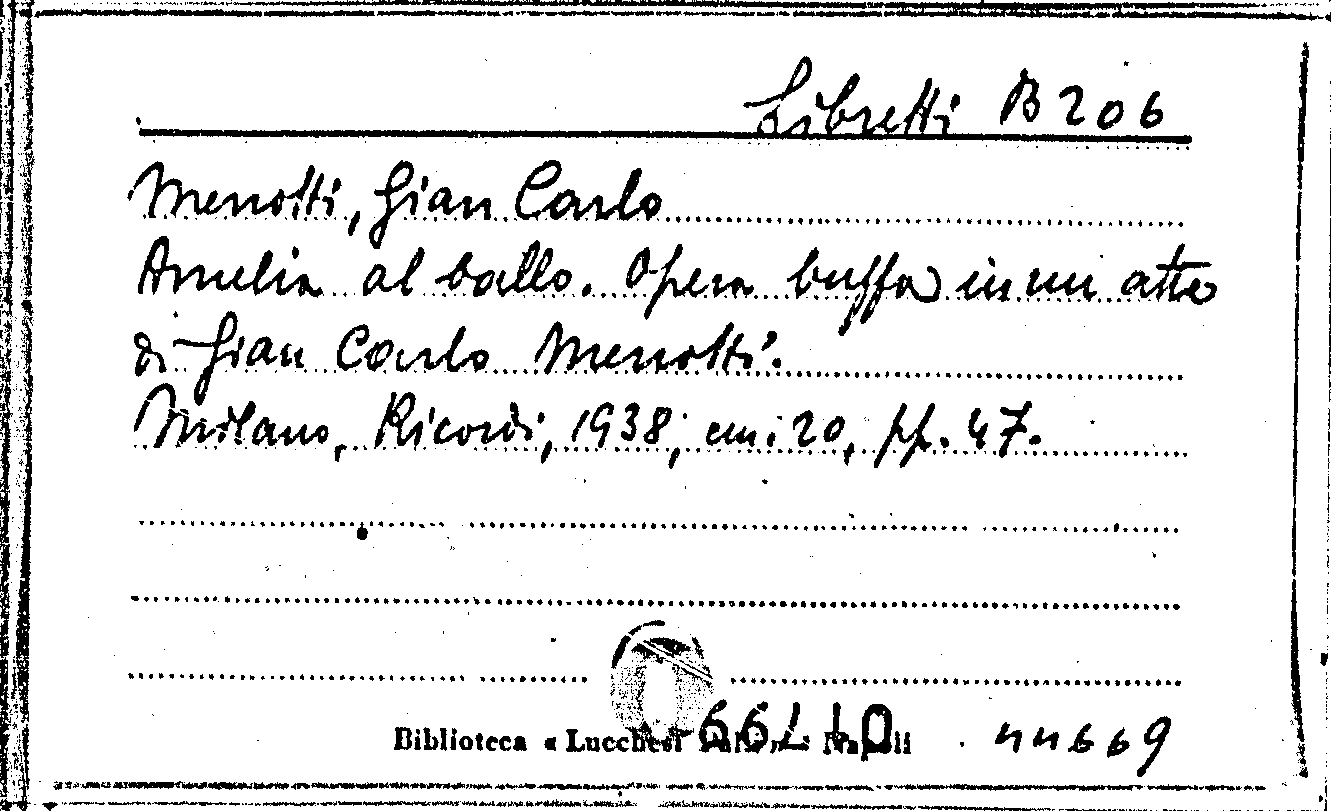 Libretti B 206
Menotti, Gian Carlo
Amelia al ballo. Opera buffa in un atto
di Gian Carlo Menotti.
Milano, Ricordi, 1938; cm. 20, pp. 47.
Biblioteca « Lucchesi Napoli
44669